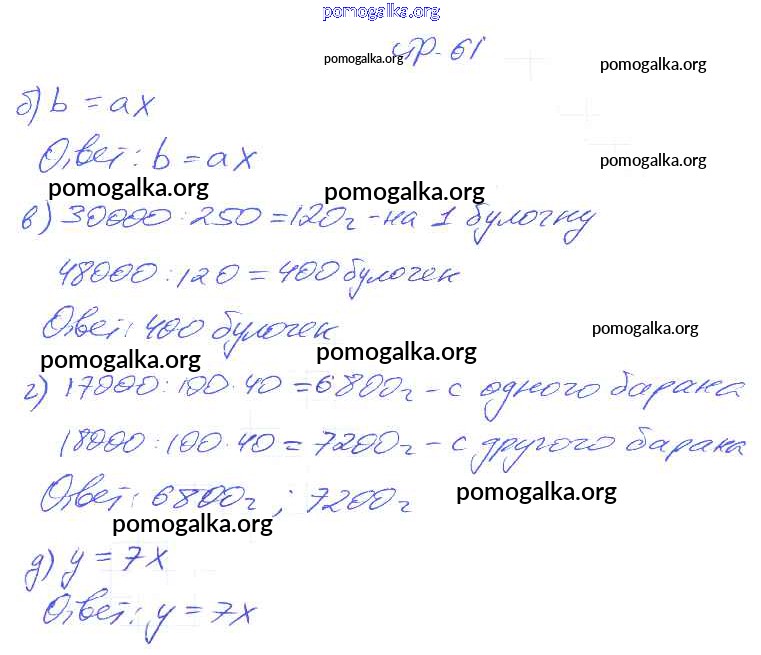 pomogalka.org
стр. 61
pomogalka.org pomogalka.org
б) b = ax
Ответ: b = ax
pomogalka.org
pomogalka.org pomogalka.org
в) 30000 : 250 = 120г - на 1 булочку
48000 : 120 = 400 булочек
Ответ: 400 булочек
pomogalka.org
pomogalka.org pomogalka.org
г) 17000 : 100 · 40 = 6800г - с одного барана
18000 : 100 · 40 = 7200г - с другого барана
Ответ: 6800г ; 7200г
pomogalka.org
pomogalka.org
д) y = 7x
Ответ: y = 7x